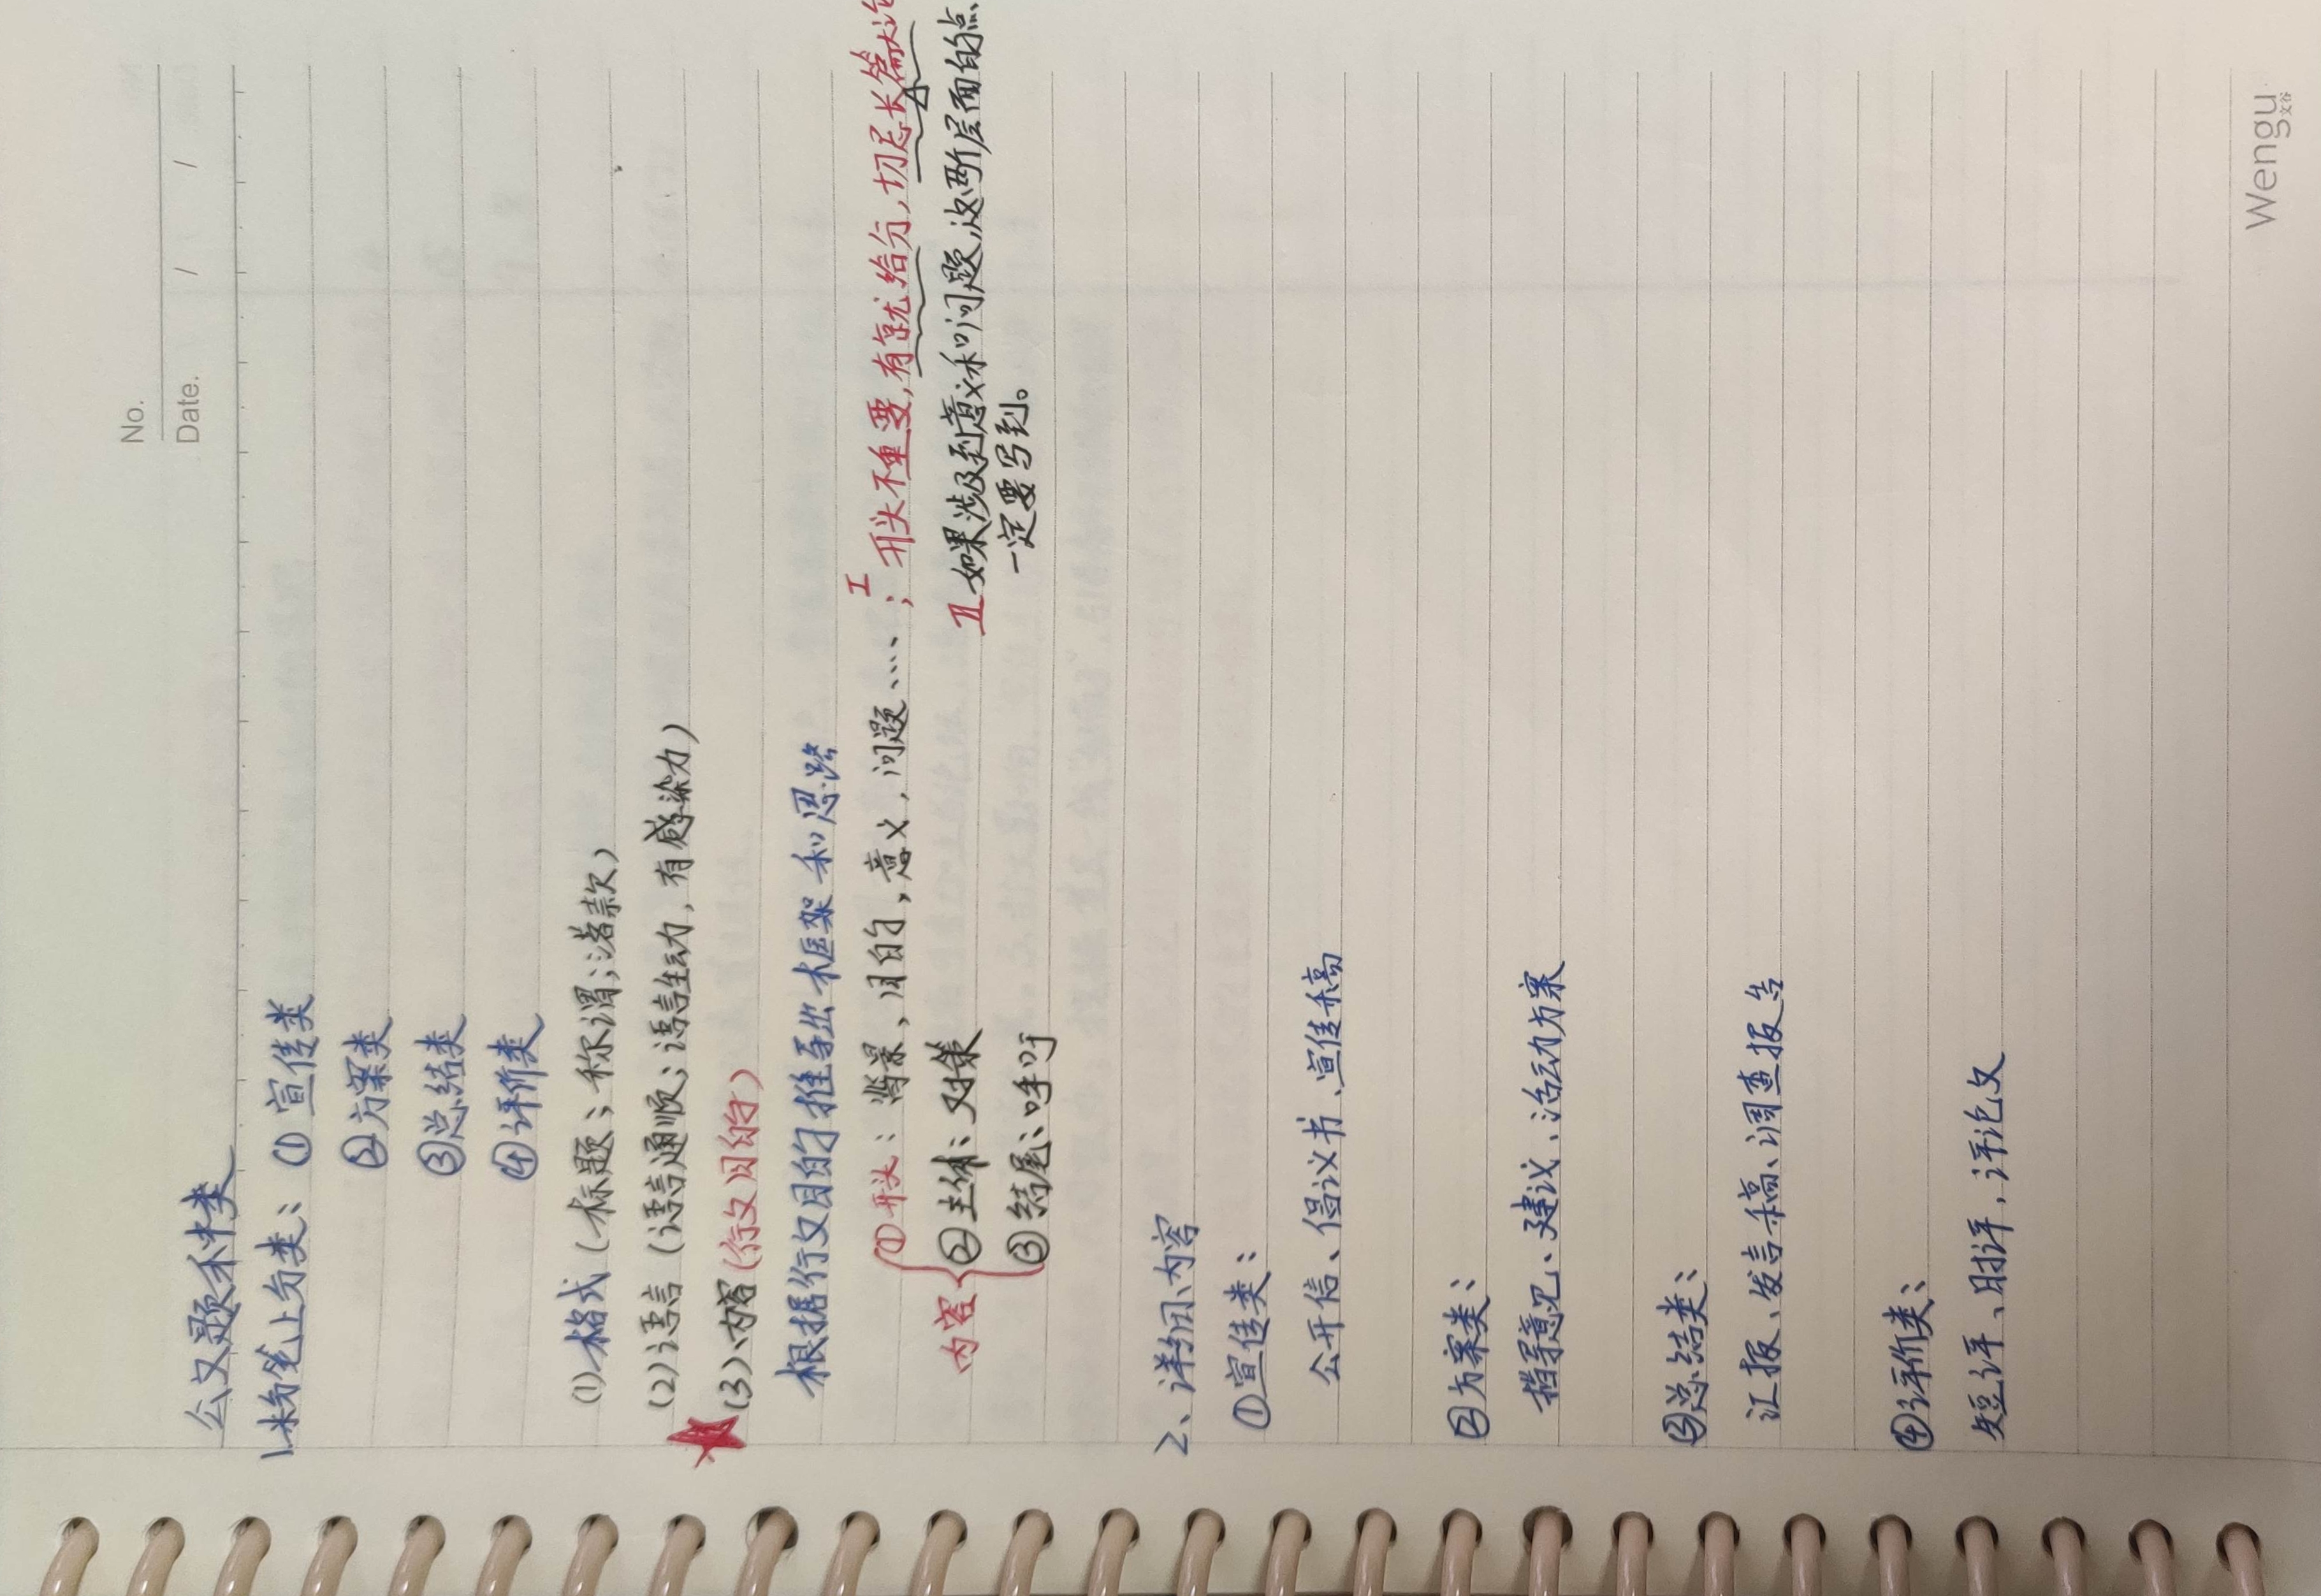 No.
Date. / /
公文题种类
1.粉笔上分类：① 宣传类
②方案类
③总结类
④评价类
(1)格式（标题；称谓；落款）
(2)语言（语言通顺；语言生动，有感染力）
(3)、内容（行文目的）
根据行文目的推导出框架和思路
①开头：背景、目的，意义，问题····；I 开头不重要，有就给分，切忌长篇大论
内容 ②主体：对策 II 如果涉及到意义和问题，这两个层面的点
③结尾：呼吁 一定要写到。
2、详细内容
①宣传类：
公开信、倡议书、宣传稿
②方案类：
指导意见、建议、活动方案
③总结类：
汇报、发言稿、调查报告
④评价类：
短评、时评，评论文
Wengu
文谷